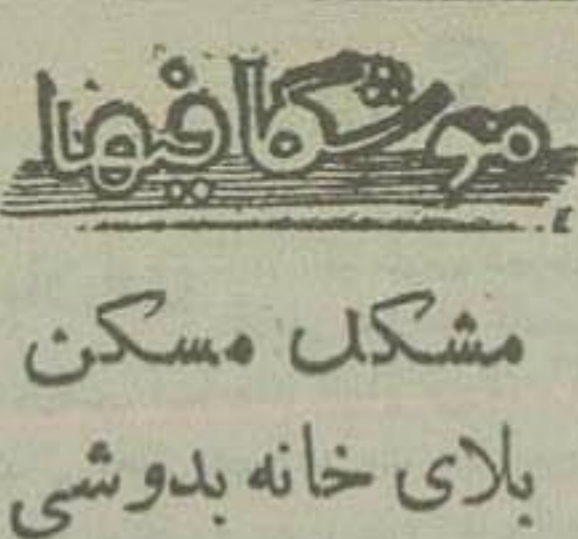 موشکافیها
مشکل مسکن
بلای خانه بدوشی